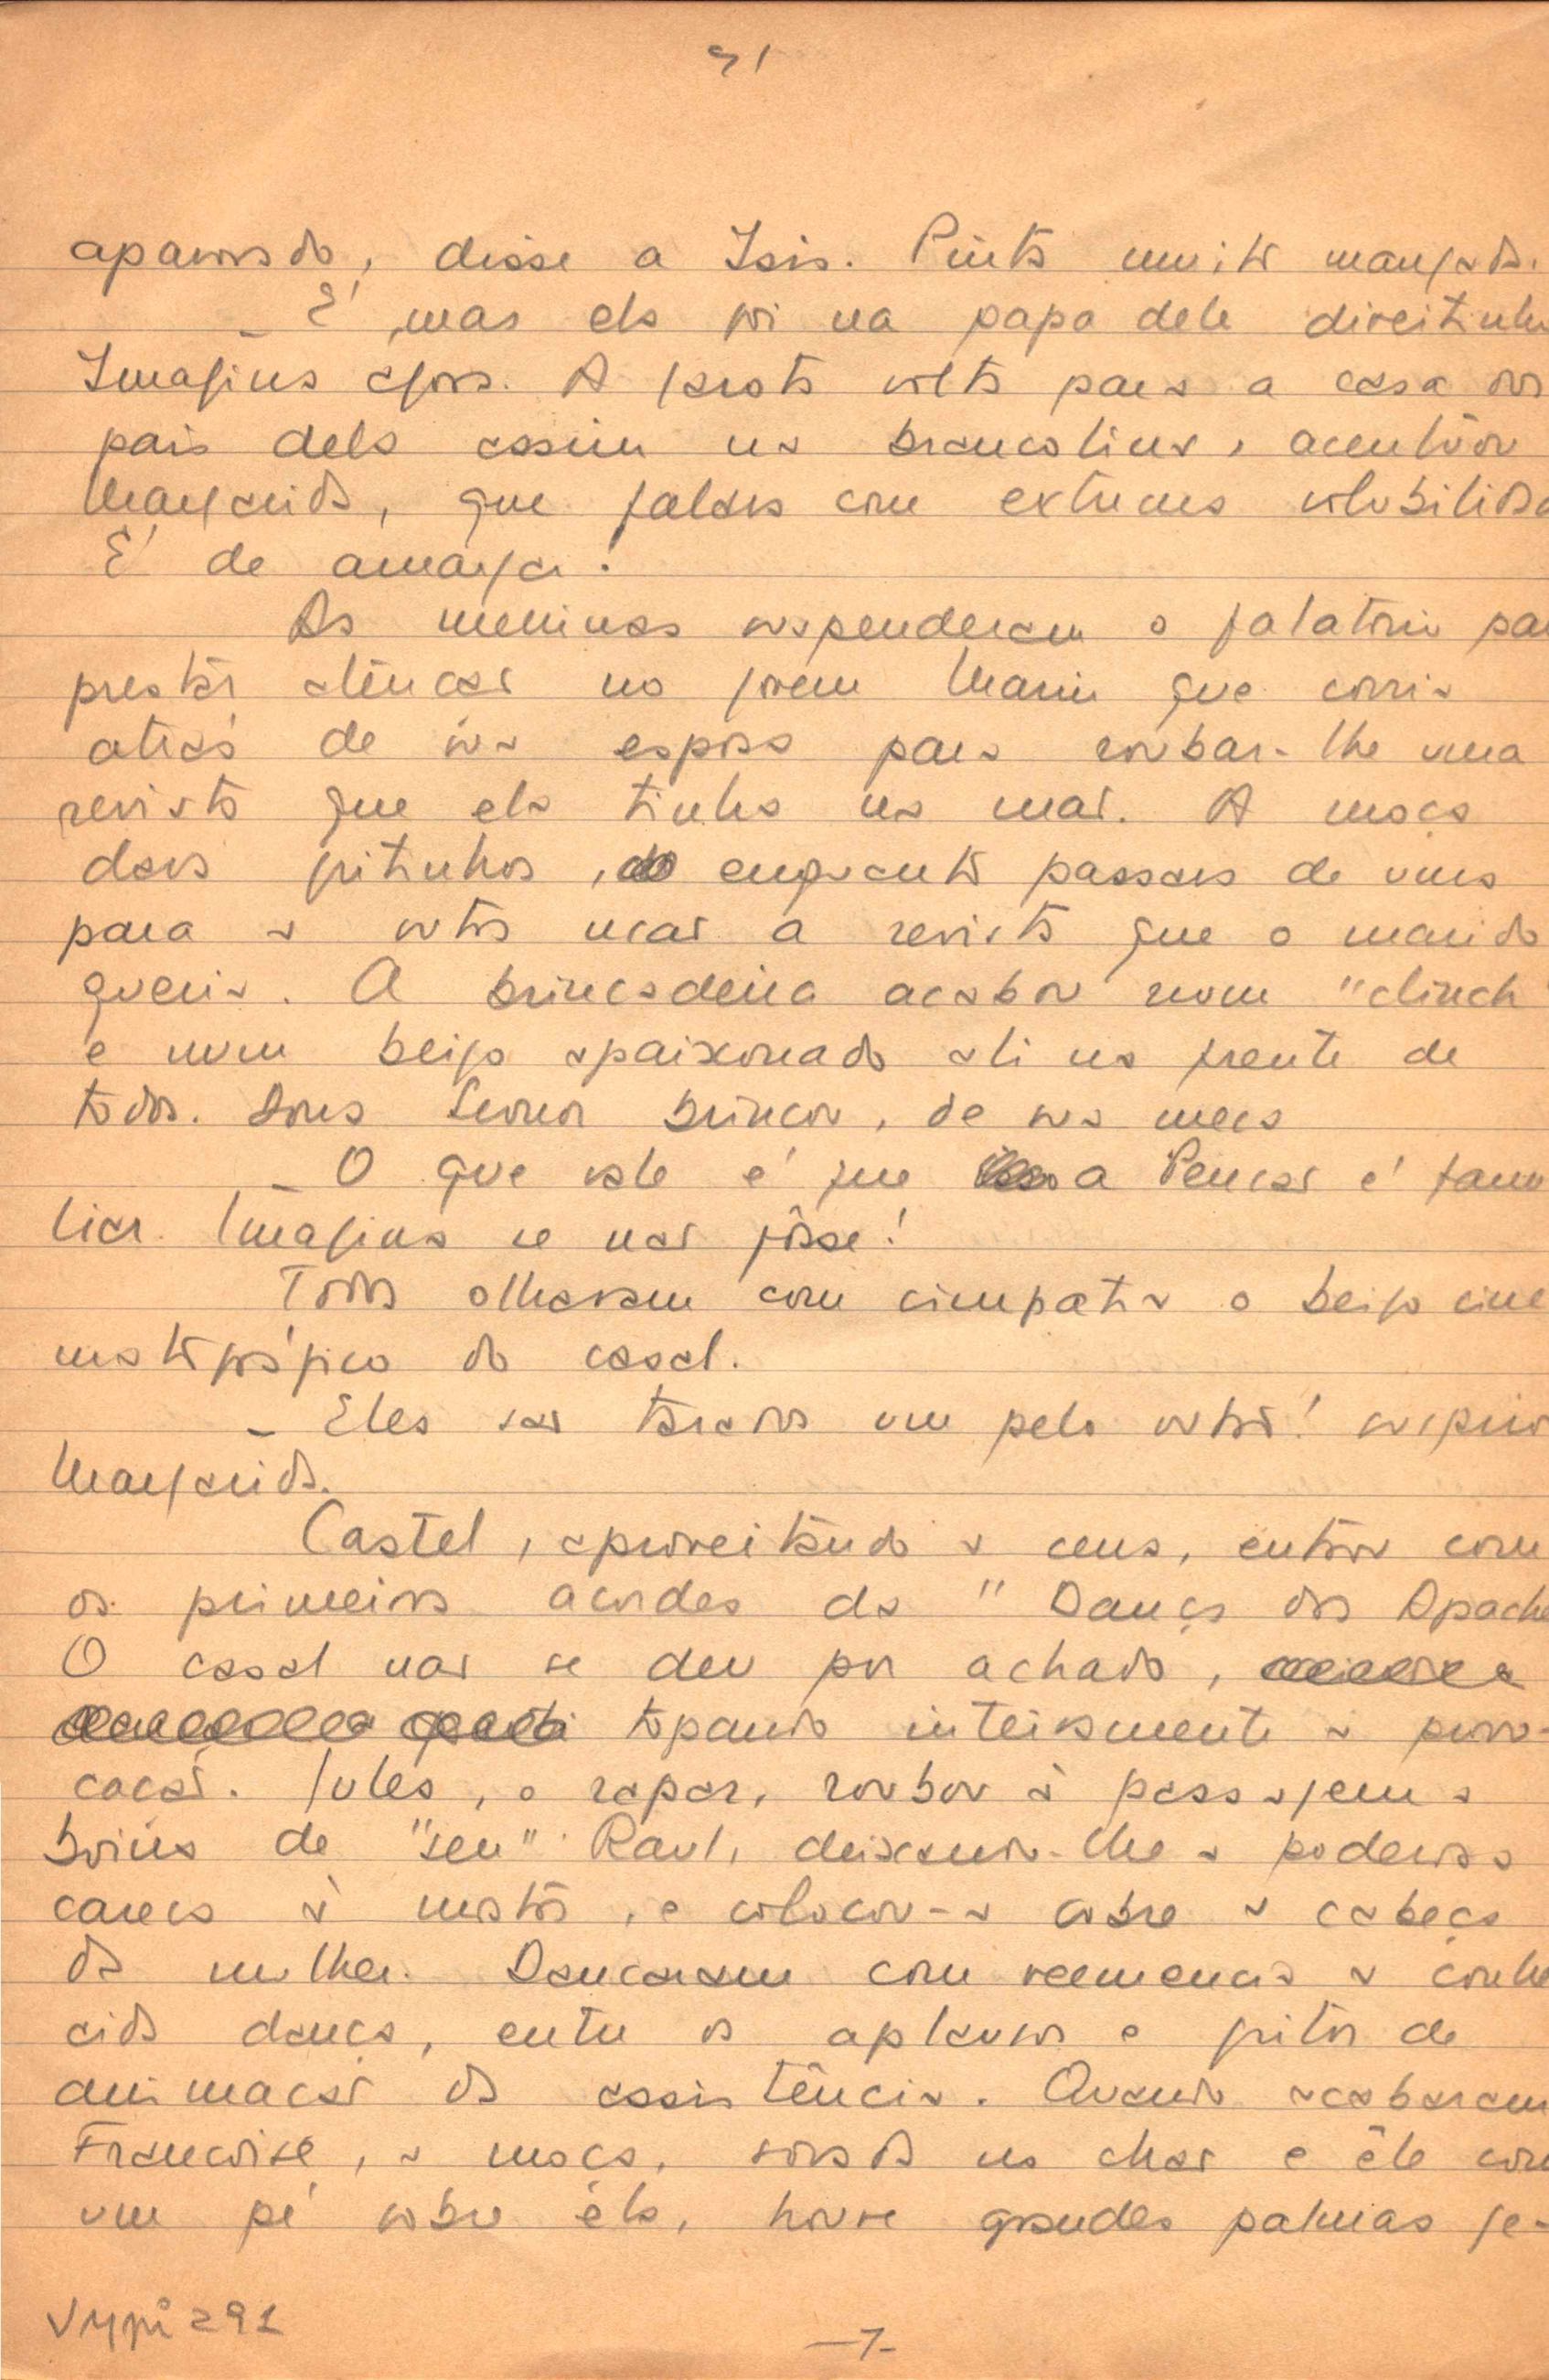 91
apavorada, disse a Isis. Pinta muito manjada.
_ É, mas ela foi na papa dele direitinho
Imagina agora. A garota volta para a casa dos
pais dela assim na brancolina, acentuou
Margarida, que falava com extrema volubilida
É de amargar!
As meninas suspenderam o falatório pa
prestar atenção no jovem Marin que corria
atrás de sua esposa para roubar-lhe uma
revista que ela tinha na mão. A moça
dava gritinhos, enquanto passava de uma
para a outra mão a revista que o marido
queria. A brincadeira acabou num "clinch"
e num beijo apaixonado ali na frente de
todos. Dona Leonor brincou, de sua mesa
_ O que vale é que a Pensão é fami
liar. Imagina se não fôsse!
Todos olhavam com simpatia o beijo cine
matográfico do casal.
_ Eles são tarados um pelo outro! suspirou
Margarida.
Castel, aproveitando a cena, entrou com
os primeiros acordes da "Dança dos Apache
O casal não se deu por achado,
topando inteiramente a provo-
cação. Jules, o rapaz, roubou à passagem a
boina de "seu" Raul, deixando-lhe a poderosa
careca à mostra, e colocou-a sobre a cabeça
da mulher. Dançaram com veemencia a conhe
cida dança, entre os aplausos e gritos de
animação da assistência. Quando acabaram
Françoise, a moça, no chão e êle com
um pé sobre ela, houve grandes palmas ge-
291
-7-